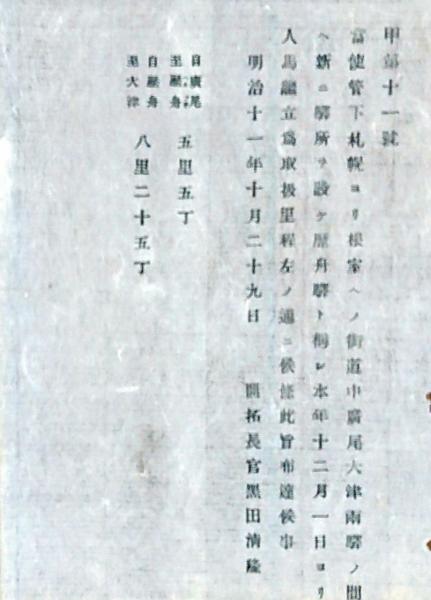 甲第十一號
當使管下札幌ヨリ根室ヘノ街道中廣尾大津兩驛ノ間
ヘ新ニ驛所ヲ設ケ歷舟驛ト稱シ本年十二月一日ヨリ
人馬繼立爲取扱里程左ノ通ニ候條此旨布達候事
明治十一年十月二十九日 開拓長官黑田淸隆
自廣尾至歷舟 五里五丁
自歷舟至大津 八里二十五丁